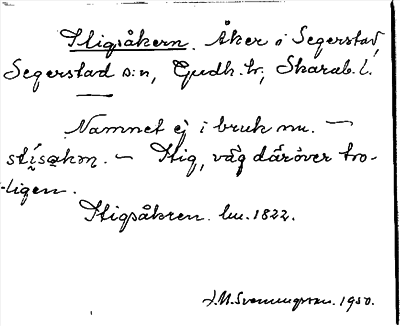 Stigsåkern. Åker i Segerstad,
Segerstad s:n, Gudh. hr, Skarab. l.
Namnet ej i bruk nu. —
— Stig, väg däröver tro-
ligen.
Stigsåkren. hu. 1822.
1950.